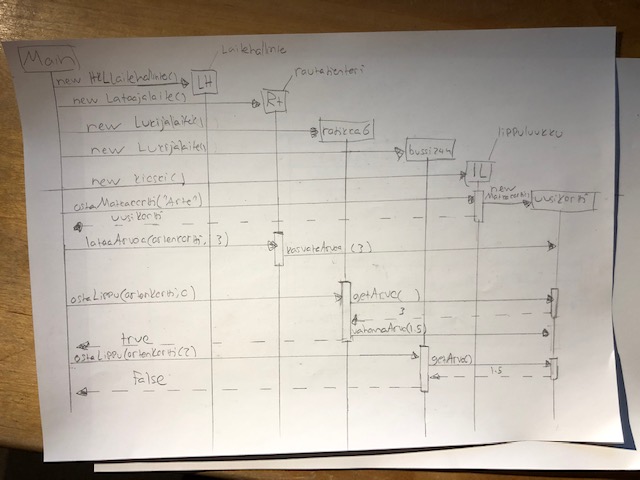 Main
Laitehallinto
new HKLLaitehallinto()
LH
rautatientori
new Lataajalaite()
Rt
new Lukijalaite()
ratikka6
new Lukijalaite()
bussi244
lippuluukku
new kioski()
lL
ostaMatkakortti("Arto")
new Matkakortti
uusikortti
uusikortti
lataaArvoa(artonkortti, 3)
kasvataArvoa (3)
ostaLippu(artonkortti, 0)
getArvo( )
3
vahennaArvo(1.5)
true
ostaLippu(artonkortti, 2)
getArvo()
1.5
False